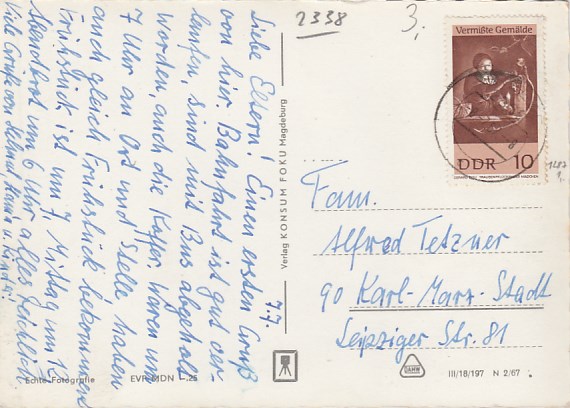 2338
3,
Vermißte Gemälde
DDR 10
1262
7.7.
Liebe Eltern! Einen ersten Gruß
von hier. Bahnfahrt ist gut ver-
laufen, sind mit Bus abgeholt
worden, auch die Koffer. Waren um
7 Uhr an Ort und Stelle, haben
auch gleich Frühstück bekommen
Frühstück ist um 7, Mittag um 12
Abendbrot um 6 Uhr, alles reichlich
Viele Grüße von Helmut, u. Kinder!
Verlag KONSUM FOKU Magdeburg
Fam.
Alfred Tetzner
90 Karl-Marx-Stadt
Leipziger Str. 81
Echte Fotografie
EVP MDN -.25
III/18/197 N 2/67